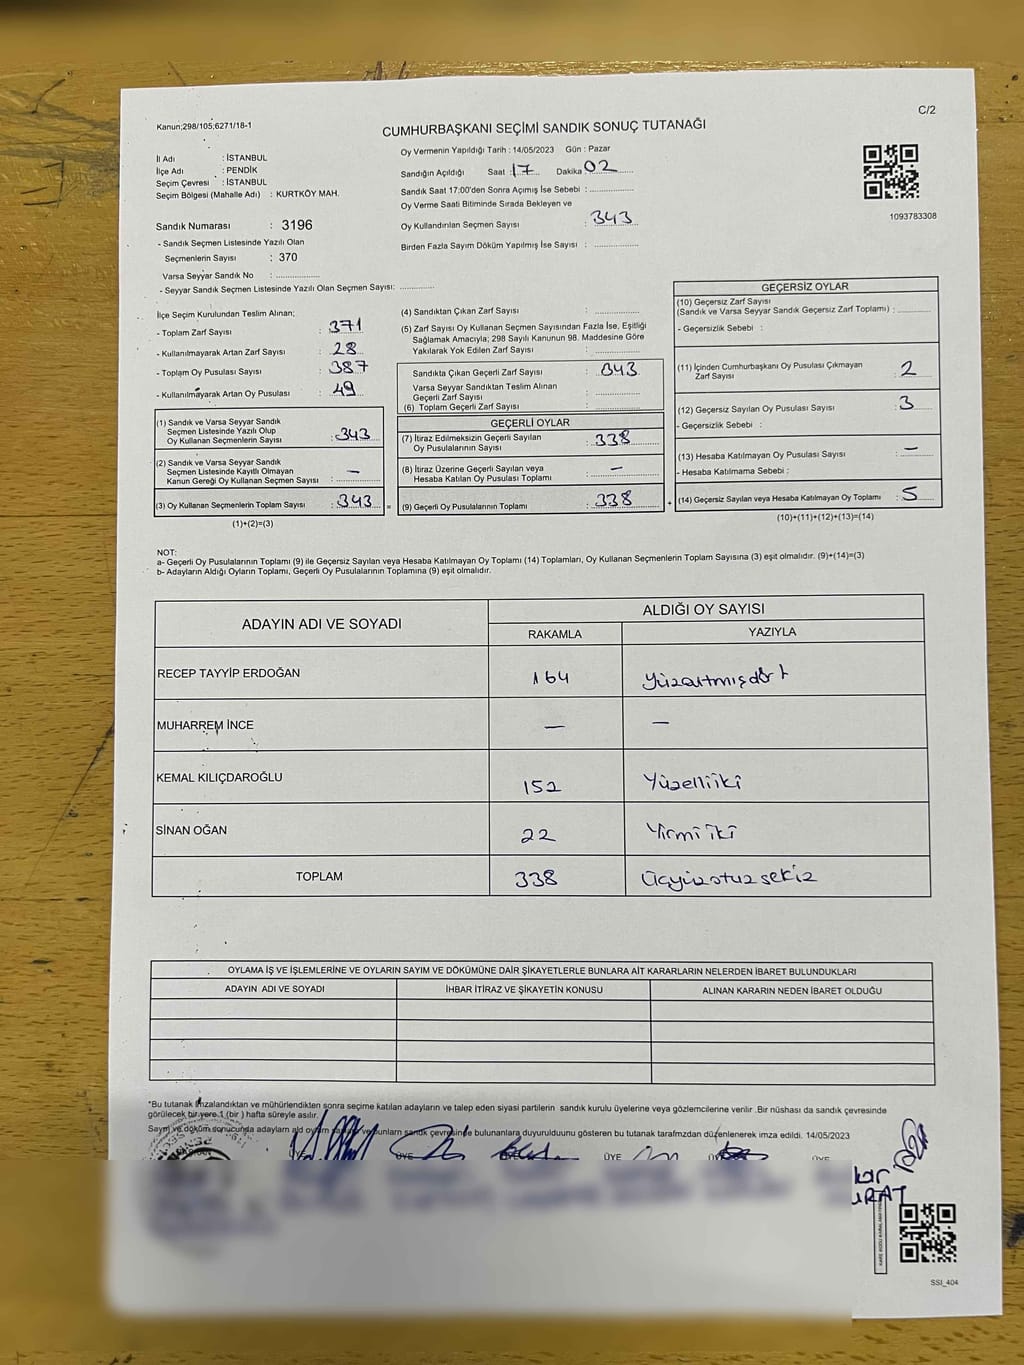 C/2
Kanun;298/105;6271/18-1
CUMHURBAŞKANI SEÇİMİ SANDIK SONUÇ TUTANAĞI
İl Adı : İSTANBUL
İlçe Adı : PENDİK
Seçim Çevresi : İSTANBUL
Seçim Bölgesi (Mahalle Adı) : KURTKÖY MAH.
Sandık Numarası : 3196
- Sandık Seçmen Listesinde Yazılı Olan
Seçmenlerin Sayısı : 370
Varsa Seyyar Sandık No : ................
- Seyyar Sandık Seçmen Listesinde Yazılı Olan Seçmen Sayısı: .............
Oy Vermenin Yapıldığı Tarih : 14/05/2023 Gün : Pazar
Sandığın Açıldığı Saat : 17 Dakika 02
Sandık Saat 17:00'den Sonra Açımış İse Sebebi : ................
Oy Verme Saati Bitiminde Sırada Bekleyen ve
Oy Kullandırılan Seçmen Sayısı : 343
Birden Fazla Sayım Döküm Yapılmış İse Sayısı : ................
1093783308
İlçe Seçim Kurulundan Teslim Alınan;
- Toplam Zarf Sayısı : 371
- Kullanılmayarak Artan Zarf Sayısı : 28
- Toplam Oy Pusulası Sayısı : 387
- Kullanılmayarak Artan Oy Pusulası : 49
(1) Sandık ve Varsa Seyyar Sandık
Seçmen Listesinde Yazılı Olup
Oy Kullanan Seçmenlerin Sayısı : 343
(2) Sandık ve Varsa Seyyar Sandık
Seçmen Listesinde Kayıtlı Olmayan
Kanun Gereği Oy Kullanan Seçmen Sayısı : —
(3) Oy Kullanan Seçmenlerin Toplam Sayısı : 343 =
(1)+(2)=(3)
(4) Sandıktan Çıkan Zarf Sayısı : ................
(5) Zarf Sayısı Oy Kullanan Seçmen Sayısından Fazla İse, Eşitliği
Sağlamak Amacıyla; 298 Sayılı Kanunun 98. Maddesine Göre
Yakılarak Yok Edilen Zarf Sayısı : ................
Sandıkta Çıkan Geçerli Zarf Sayısı : 343
Varsa Seyyar Sandıktan Teslim Alınan
Geçerli Zarf Sayısı : ................
(6) Toplam Geçerli Zarf Sayısı : ................
GEÇERLİ OYLAR
(7) İtiraz Edilmeksizin Geçerli Sayılan
Oy Pusulalarının Sayısı : 338
(8) İtiraz Üzerine Geçerli Sayılan veya
Hesaba Katılan Oy Pusulası Toplamı : —
(9) Geçerli Oy Pusulalarının Toplamı : 338 +
GEÇERSİZ OYLAR
(10) Geçersiz Zarf Sayısı
(Sandık ve Varsa Seyyar Sandık Geçersiz Zarf Toplamı) : ............
- Geçersizlik Sebebi :
(11) İçinden Cumhurbaşkanı Oy Pusulası Çıkmayan
Zarf Sayısı : 2
(12) Geçersiz Sayılan Oy Pusulası Sayısı : 3
- Geçersizlik Sebebi :
(13) Hesaba Katılmayan Oy Pusulası Sayısı : —
- Hesaba Katılmama Sebebi :
(14) Geçersiz Sayılan veya Hesaba Katılmayan Oy Toplamı : 5
(10)+(11)+(12)+(13)=(14)
NOT:
a- Geçerli Oy Pusulalarının Toplamı (9) ile Geçersiz Sayılan veya Hesaba Katılmayan Oy Toplamı (14) Toplamları, Oy Kullanan Seçmenlerin Toplam Sayısına (3) eşit olmalıdır. (9)+(14)=(3)
b- Adayların Aldığı Oyların Toplamı, Geçerli Oy Pusulalarının Toplamına (9) eşit olmalıdır.
ADAYIN ADI VE SOYADI ALDIĞI OY SAYISI
RAKAMLA YAZIYLA
RECEP TAYYİP ERDOĞAN 164 Yüzaltmışdört
MUHARREM İNCE — —
KEMAL KILIÇDAROĞLU 152 Yüzelliiki
SİNAN OĞAN 22 Yirmi iki
TOPLAM 338 Üçyüzotuz sekiz
OYLAMA İŞ VE İŞLEMLERİNE VE OYLARIN SAYIM VE DÖKÜMÜNE DAİR ŞİKAYETLERLE BUNLARA AİT KARARLARIN NELERDEN İBARET BULUNDUKLARI
ADAYIN ADI VE SOYADI İHBAR İTİRAZ VE ŞİKAYETİN KONUSU ALINAN KARARIN NEDEN İBARET OLDUĞU
*Bu tutanak imzalandıktan ve mühürlendikten sonra seçime katılan adayların ve talep eden siyasi partilerin sandık kurulu üyelerine veya gözlemcilerine verilir .Bir nüshası da sandık çevresinde
görülecek bir yere 1 (bir ) hafta süreyle asılır.
Sayım ve döküm sonucunda adayların ve bunların sandık çevresinde bulunanlara duyurulduunu gösteren bu tutanak tarafımzdan düzenlenerek imza edildi. 14/05/2023
ÜYE ÜYE ÜYE ÜYE
SSI_404